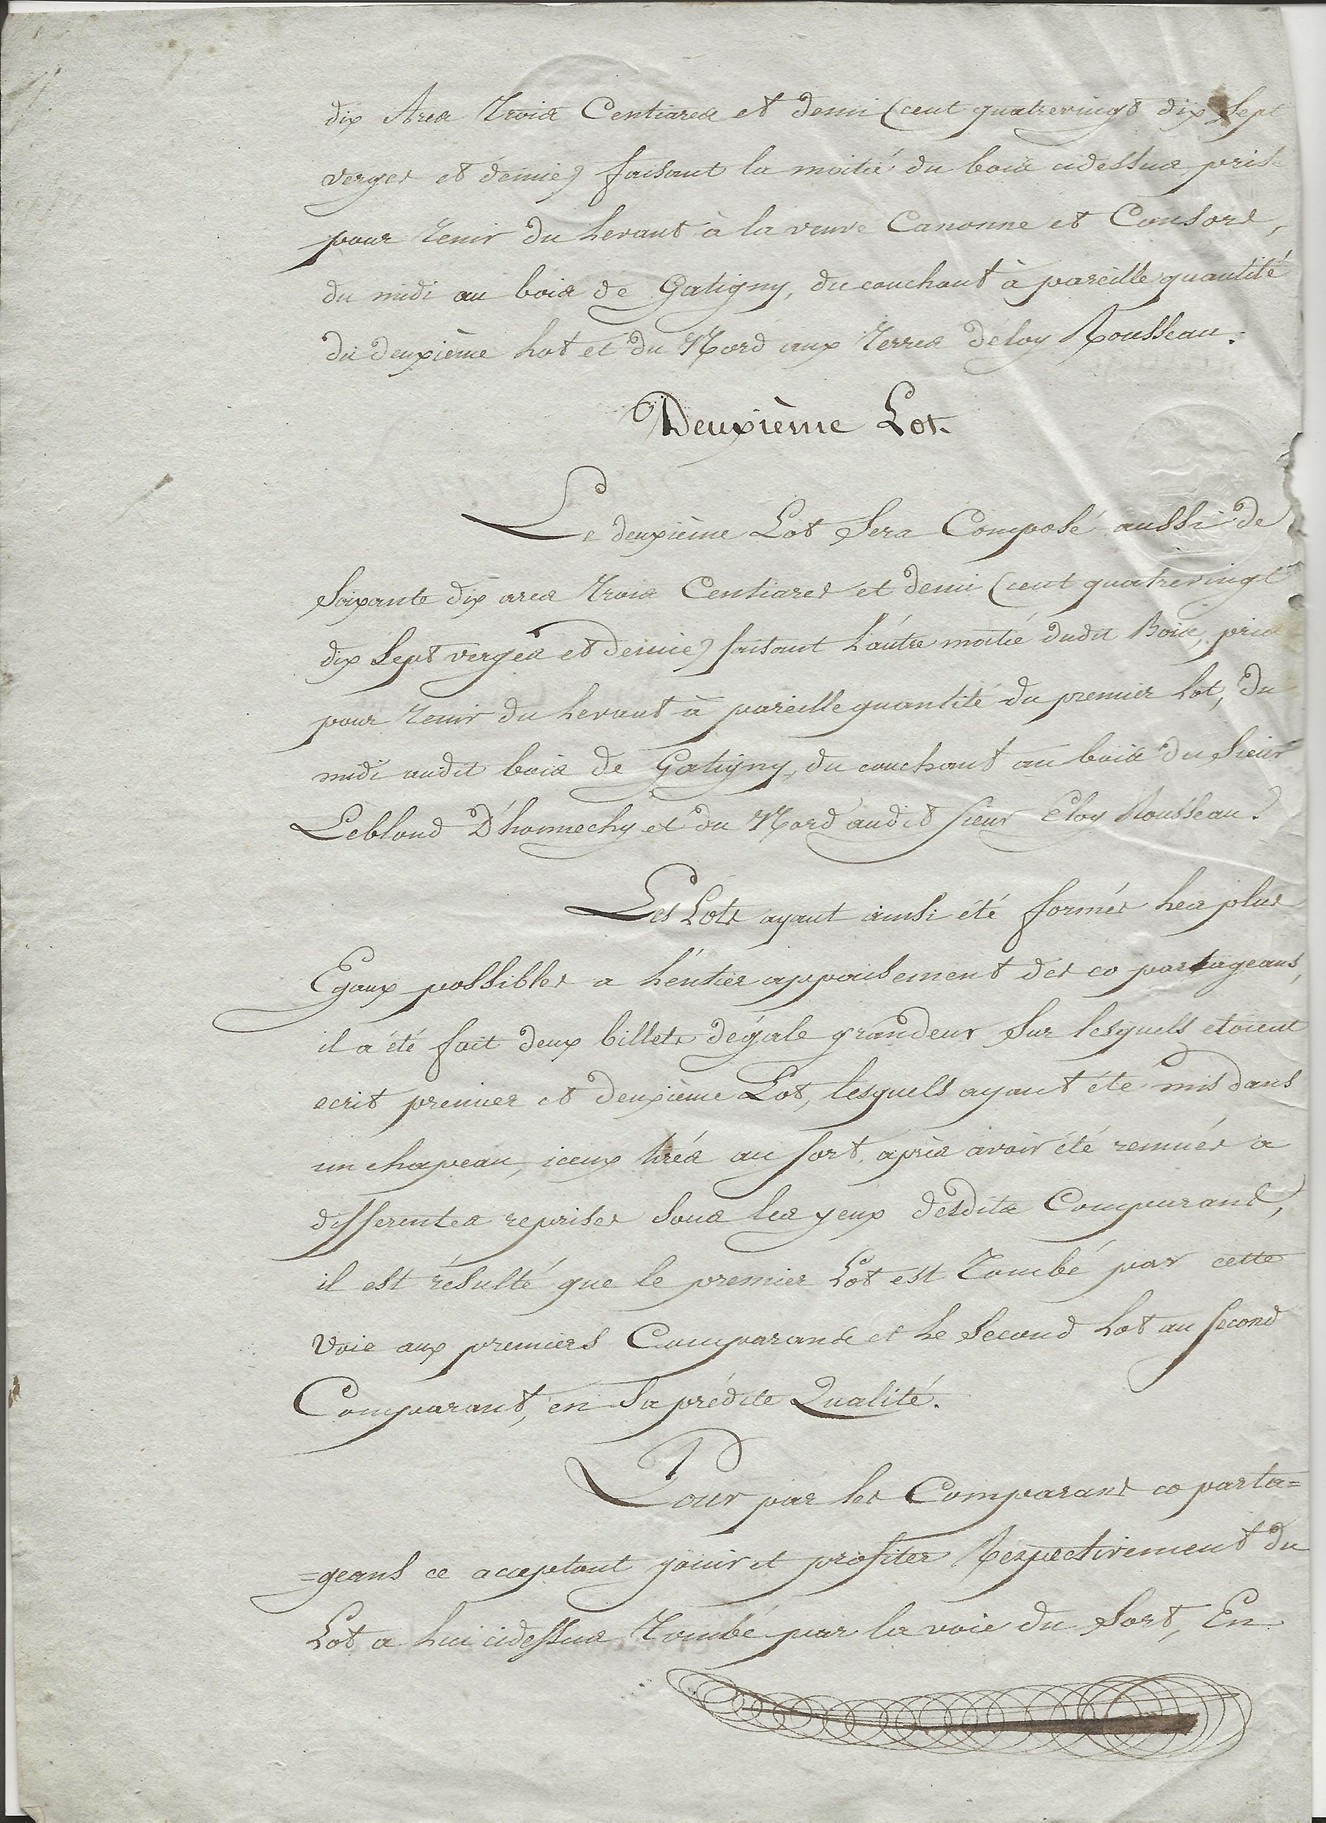 dix Ares Trois Centiares et demi (cent quatrevingt dix Sept
verges et demie) faisant la moitié du bois cidessus pris
pour Tenir du Levant à la veuve Canonne et Consors,
du midi au bois de Gatigny, du couchant à pareille quantité
du deuxième Lot et du Nord aux Terres d'éloy Rousseau.
Deuxième Lot.
Le deuxième Lot Sera Composé aussi de
Soixante dix ares Trois Centiares et demi (cent quatrevingt
dix Sept verges et demie) faisant L'autre moitié dudit Bois, pris
pour Tenir du Levant à pareille quantité du premier Lot, du
midi audit bois de Gatigny, du couchant au bois du Sieur
Leblond D'honnechy et du Nord audit Sieur Eloy Rousseau.
Les Lots ayant ainsi été formés Les plus
Egaux possibles a L'entier appaisement des co partageans,
il a été fait deux billets d'égale grandeur Sur lesquels etoient
ecrit premier et deuxième Lot, lesquels ayant été mis dans
un chapeau, iceux tirés au Sort, après avoir été remués a
differentes reprises Sous les yeux desdits Comparans,
il est résulté que le premier Lot est Tombé par cette
Voie aux premiers Comparans et Le Second Lot au Second
Comparant, en Sa prédite Qualité.
Pour par les Comparans co parta=
=geans ce acceptant jouir et profiter Respectivement du
Lot a Lui cidessus Tombé par la voie du Sort, En